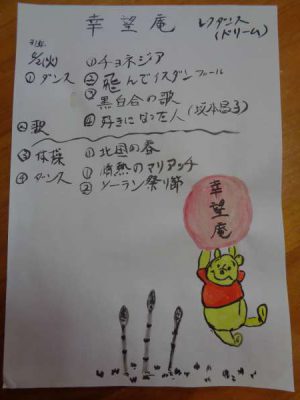 幸望庵
レクダンス
(ドリーム)
6/2(火)
①チョネジア
①ダンス
②飛んでイスタンブール
③黒百合の歌
④好きになった人(坂本昌子)
②歌
③体操 ①北国の春
④ダンス ①情熱のマリアッチ
②ソーラン祭り節
幸望庵